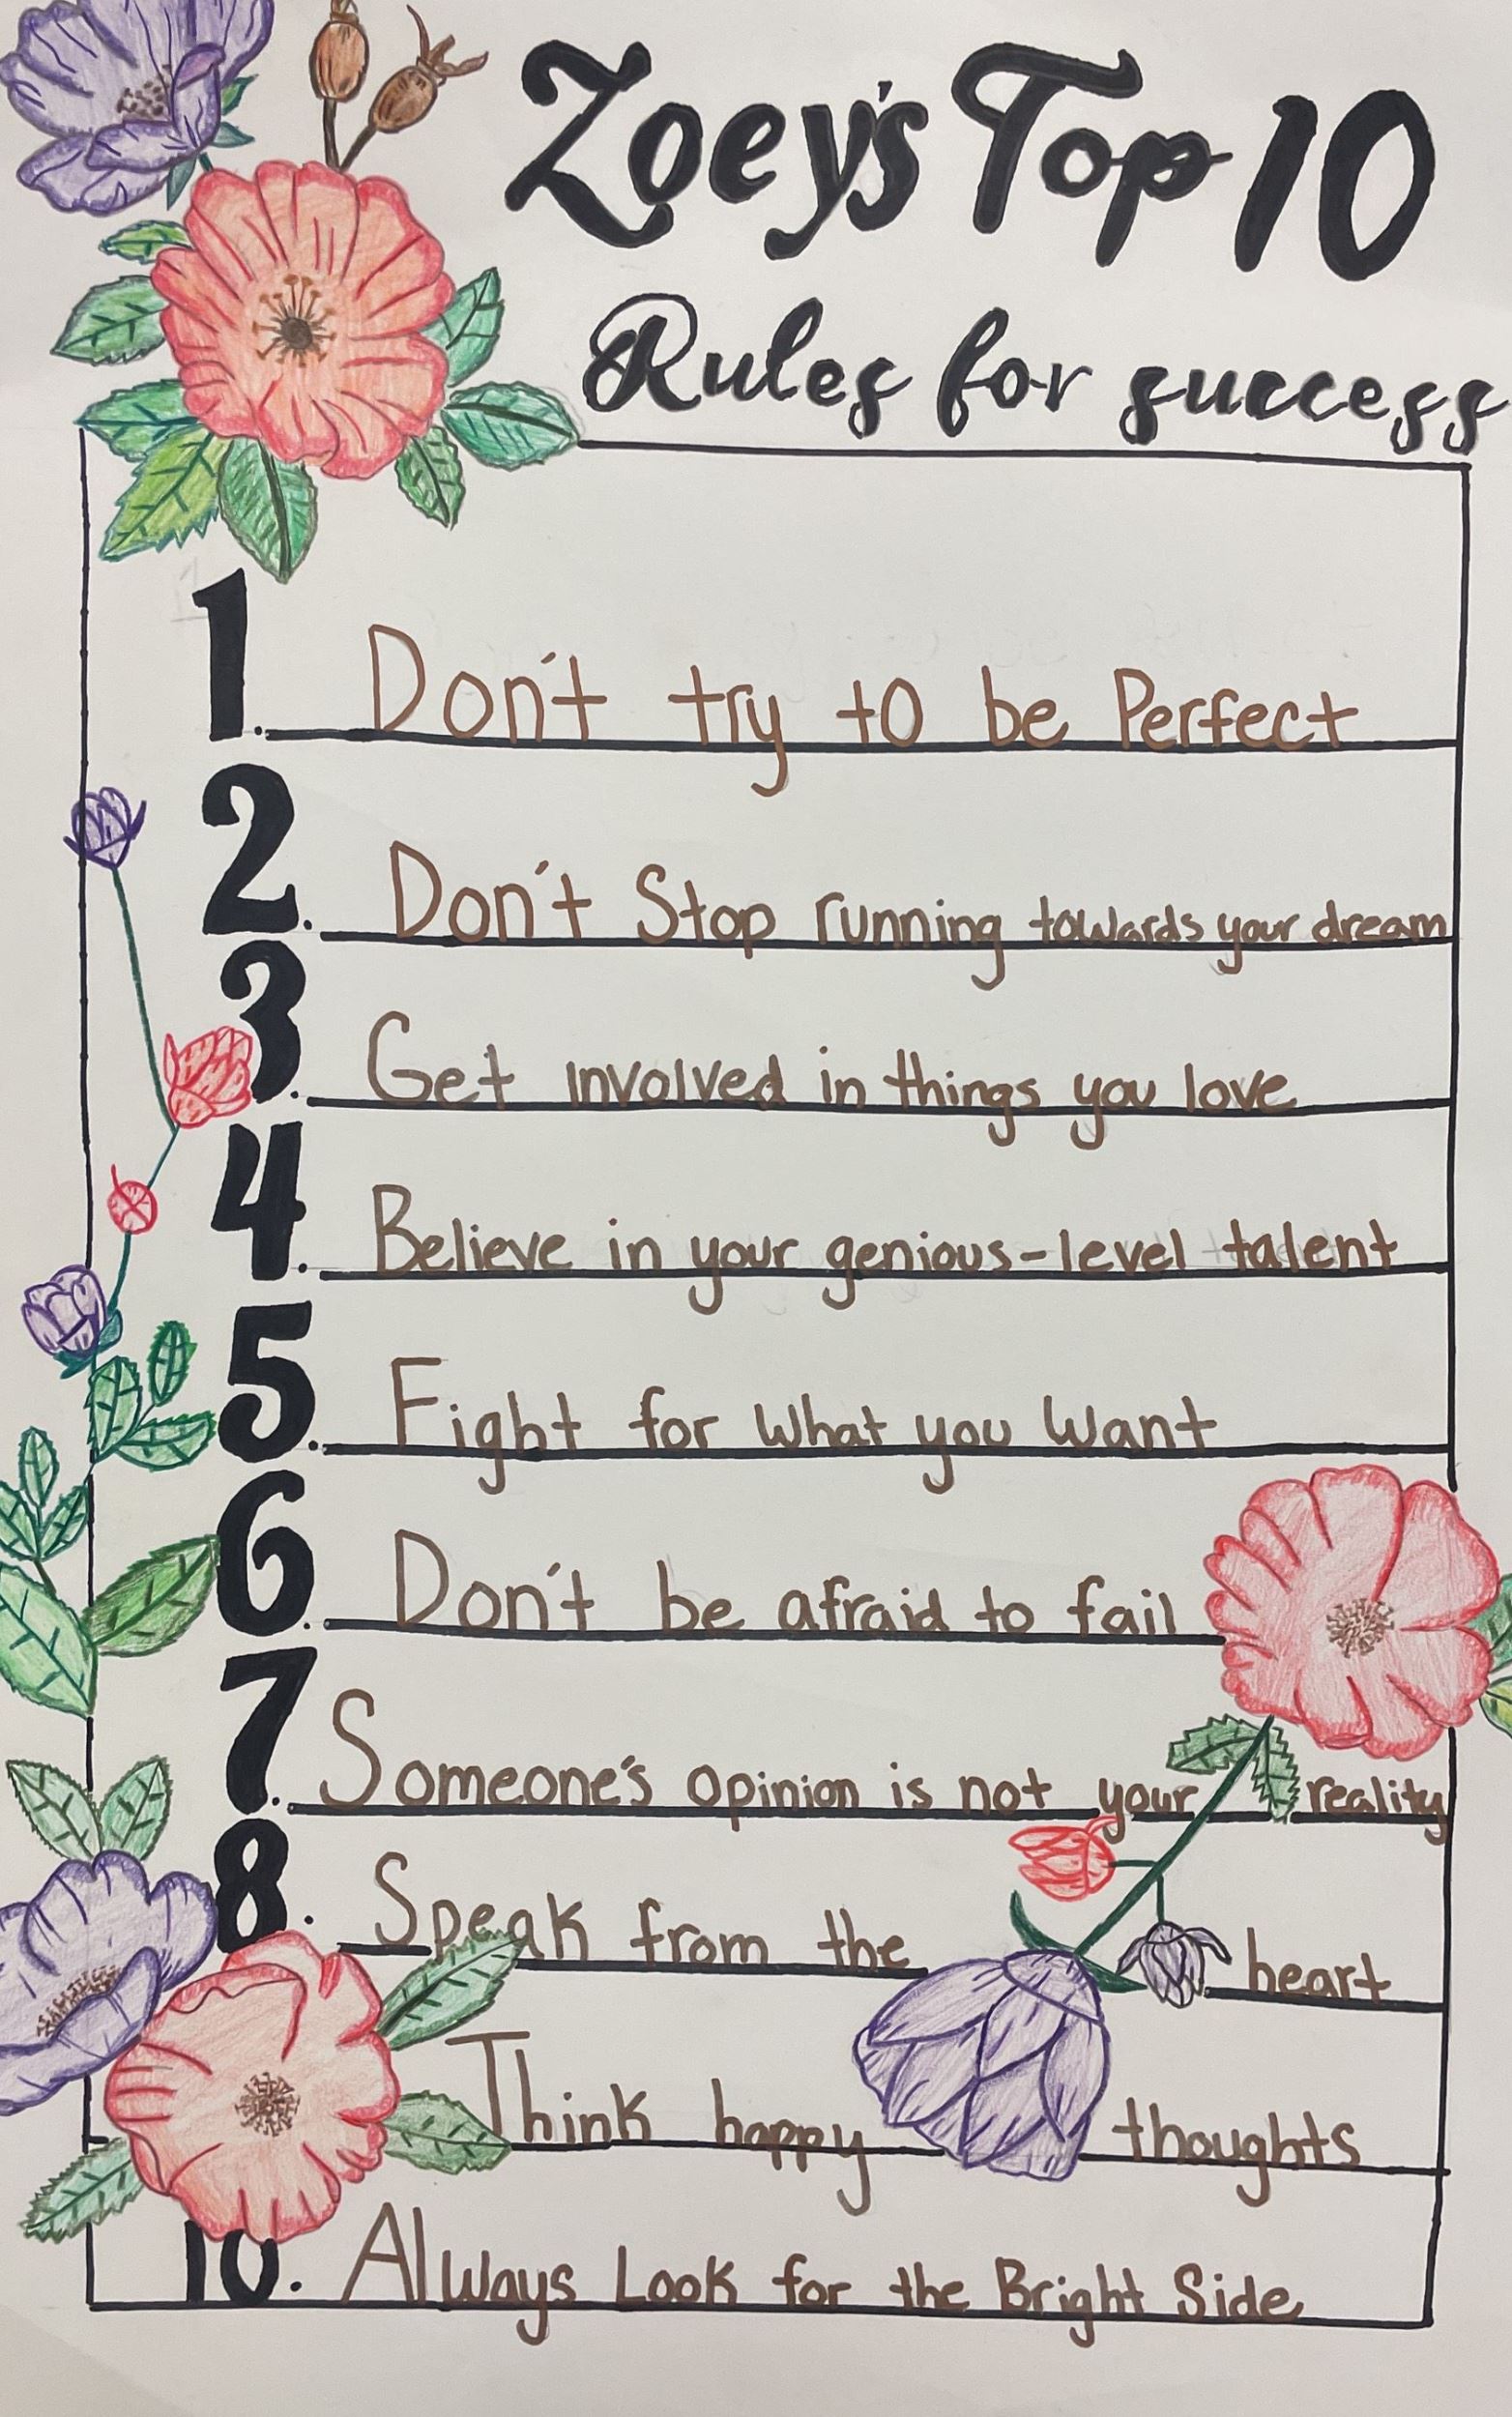 Zoey's Top 10
Rules for success
1. Don't try to be Perfect
2. Don't Stop running towards your dream
3. Get involved in things you love
4. Believe in your genious-level talent
5. Fight for what you want
6. Don't be afraid to fail
7. Someone's opinion is not your reality
8. Speak from the heart
Think happy thoughts
10. Always Look for the Bright Side